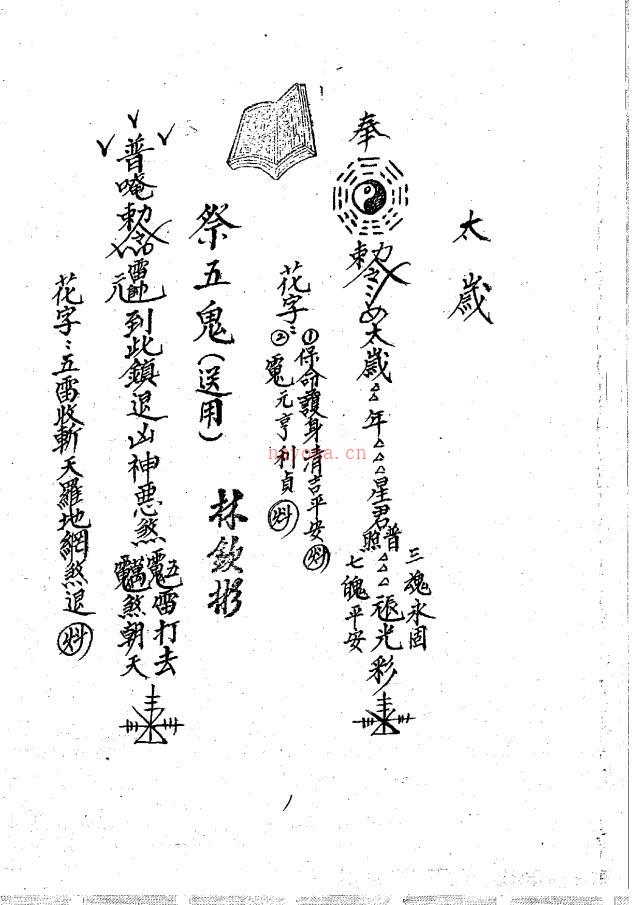 太歲
奉
勅令
太歲年星君普照
三魂永固
七魄平安
光彩
花字：
①保命護身清吉平安
②元亨利貞
祭五鬼（送用）
林欽彬
普唵勅令雷
元帥到此鎮退凶神惡煞
五雷打去
煞朝天
花字：五雷收斬天羅地網煞退
hayona.cn
1